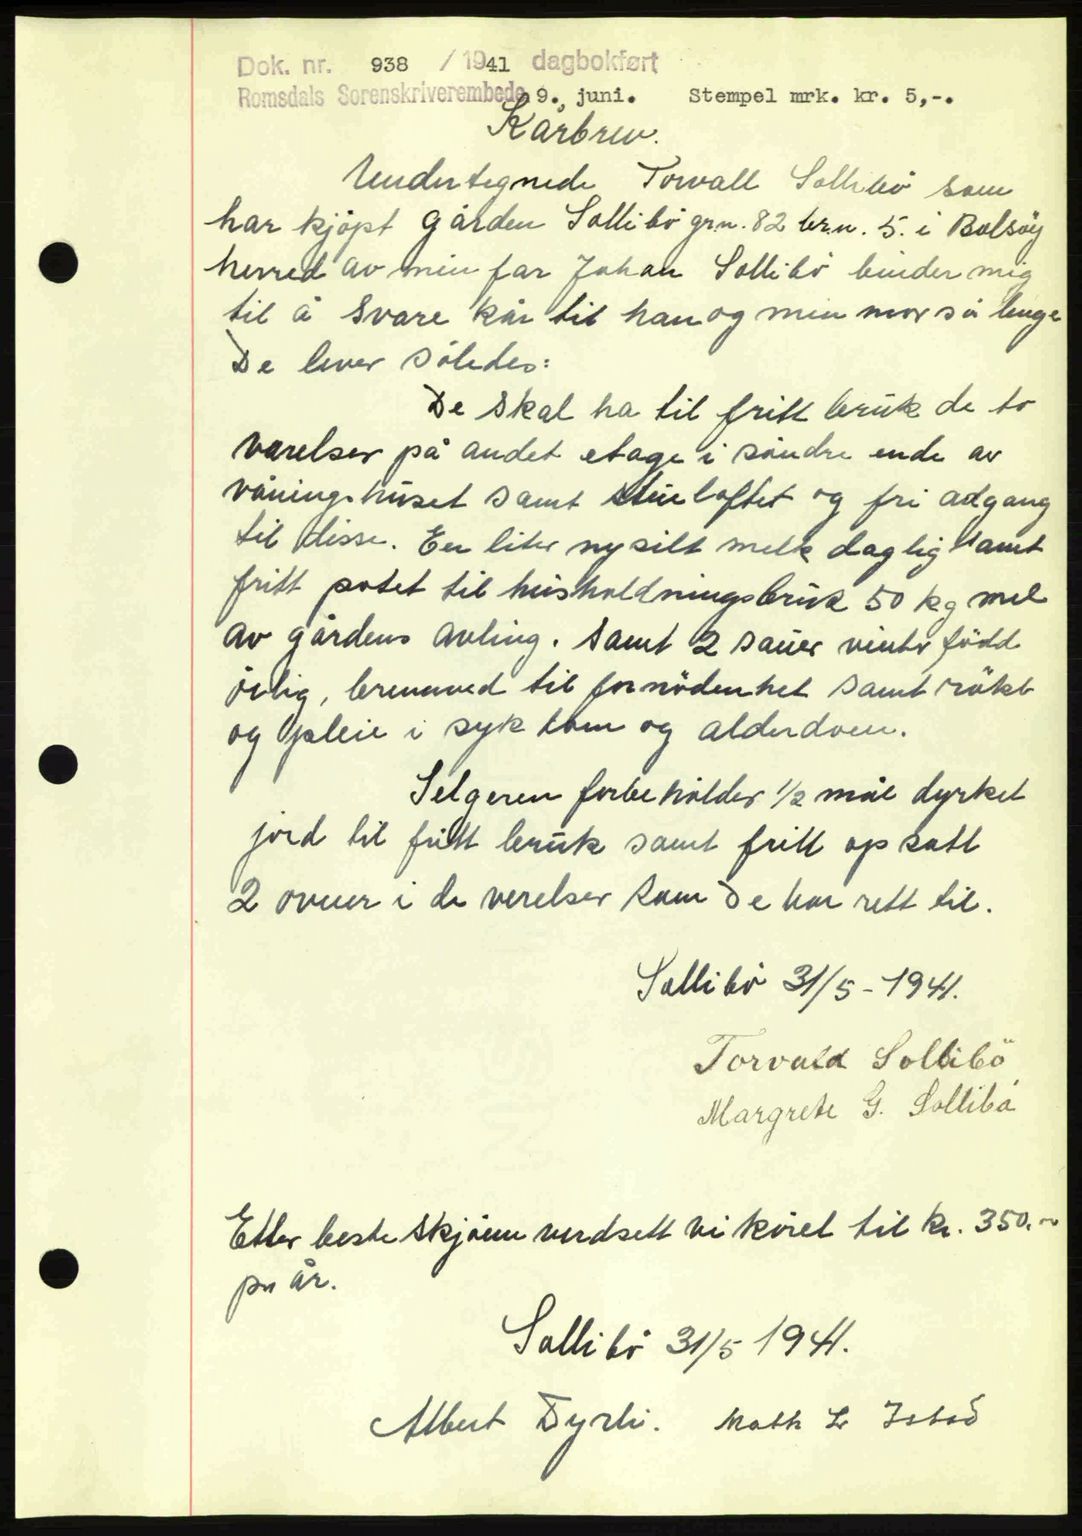 Dok. nr. 938 / 1941 dagbokført
Romsdals Sorenskriverembede 9. juni. Stempel mrk. kr. 5,-.
Kårbrev.
Undertegnede Torvall Sollibö som
har kjöpt gården Sollibö grn. 82 brn. 5. i Bolsöy
herred av min far Johan Sollibö binder mig
til å svare kår til han og min mor så lenge
De lever således:
De skal ha til fritt bruk de to
værelser på andet etage i söndre ende av
våningshuset samt stueloftet og fri adgang
til disse. En liter nysilt melk daglig samt
fritt potet til husholdningsbruk 50 kg mel
av gårdens avling. Samt 2 sauer vinterfödd
årlig, brenved til fornödenhet samt rökt
og pleie i sykdom og alderdom.
Selgeren forbeholder 1/2 mål dyrket
jord til fritt bruk samt fritt opsatt
2 ovner i de verelser som De har rett til.
Sollibö 31/5 - 1941.
Torvald Sollibö
Margrete G. Sollibö
Etter beste skjönn verdsett vi kåret til kr. 350.-
pr år.
Sollibö 31/5 1941.
Albert Dyrli. Math L Istad